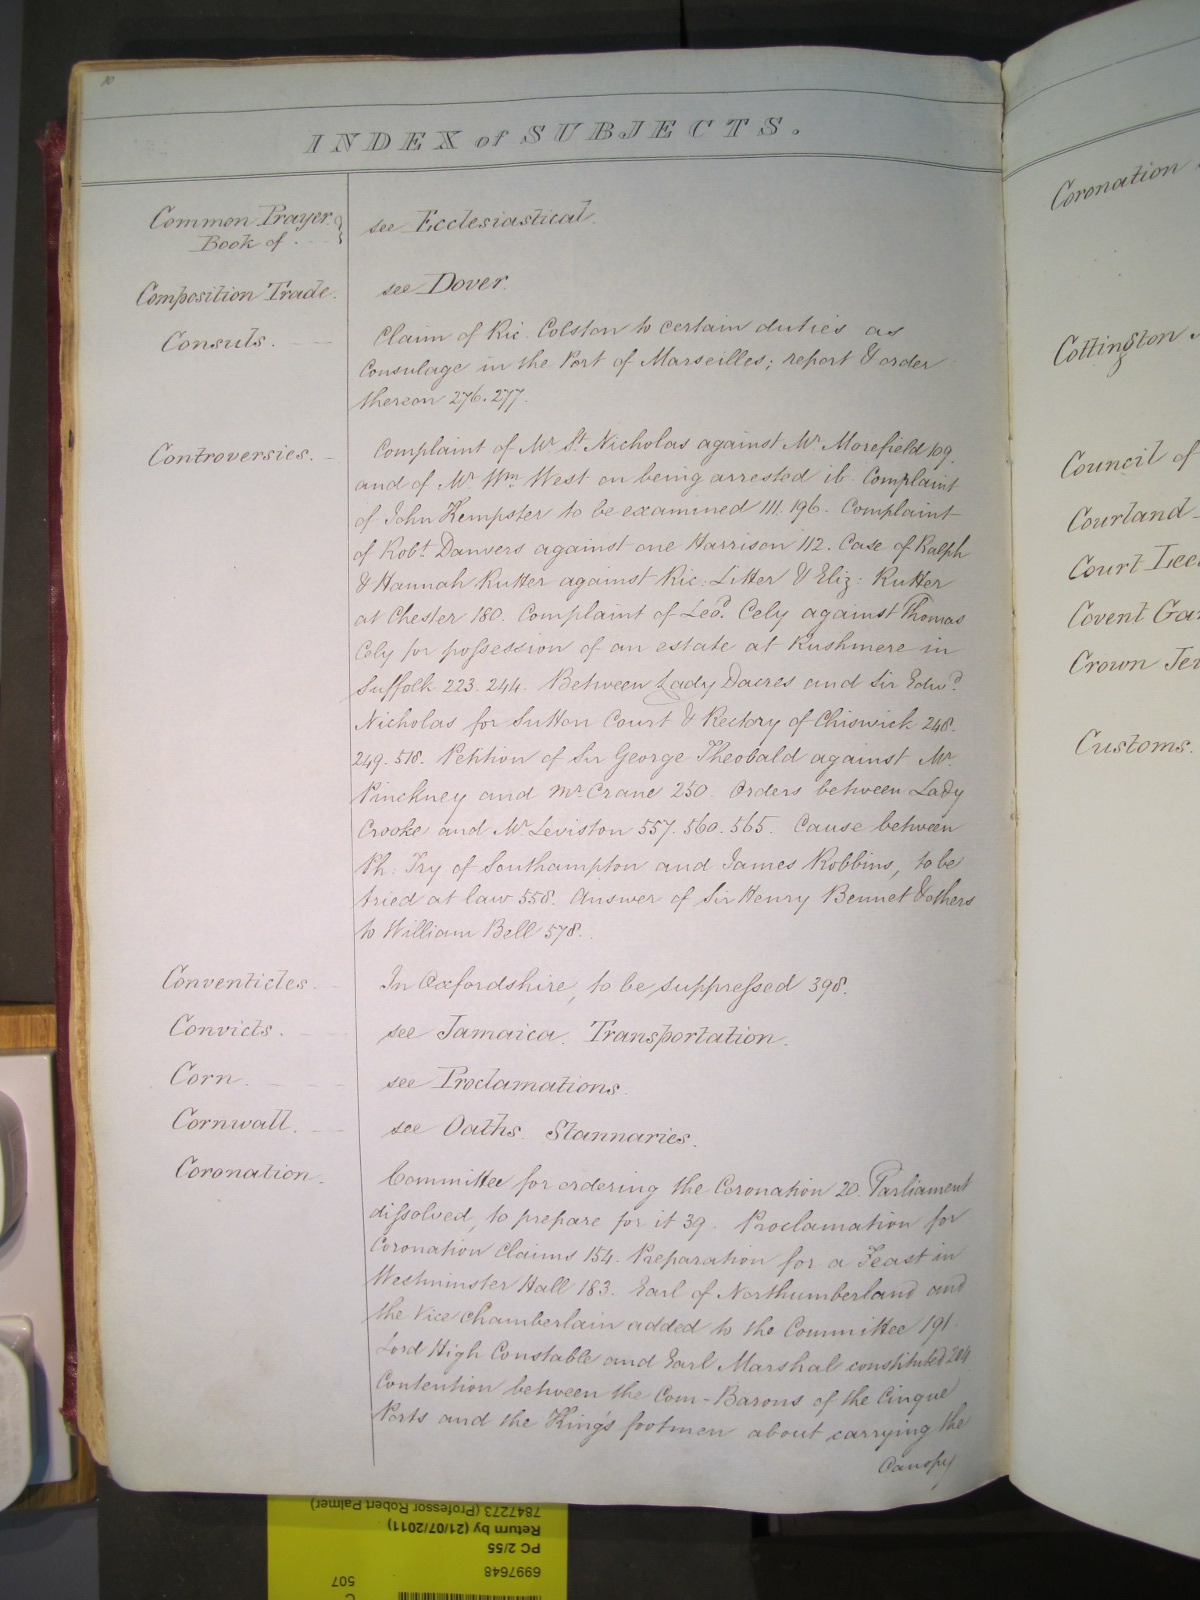 10
INDEX of SUBJECTS.
Common Prayer
Book of
see Ecclesiastical.
Composition Trade.
see Dover.
Consuls.
Claim of Ric. Colston to certain duties as
Consulage in the Port of Marseilles; report & order
thereon 276. 277.
Controversies.
Complaint of Mr St. Nicholas against Mr Morefield 109.
and of Mr. Wm. West on being arrested ib. Complaint
of John Kempster to be examined 111. 196. Complaint
of Robt Danvers against one Harrison 112. Case of Ralph
& Hannah Rutter against Ric: Litter & Eliz: Rutter
at Chester 180. Complaint of Leod. Cely against Thomas
Cely for possession of an estate at Rushmere in
Suffolk 223. 244. Between Lady Dacres and Sir Edwd.
Nicholas for Sutton Court & Rectory of Chiswick 248.
249. 518. Petition of Sir George Theobald against Mr.
Pinckney and Mr Crane 250. Orders between Lady
Crooke and Mr Leviston 557. 560. 565. Cause between
Ph: Fry of Southampton and James Robbins, to be
tried at law 558. Answer of Sir Henry Bennet & others
to William Bell 578.
Conventicles.
In Oxfordshire, to be suppressed 398.
Convicts.
see Jamaica. Transportation.
Corn.
see Proclamations.
Cornwall.
see Oaths. Stannaries.
Coronation.
Committee for ordering the Coronation 20. Parliament
dissolved, to prepare for it 39. Proclamation for
Coronation Claims 154. Preparation for a Feast in
Westminster Hall 183. Earl of Northumberland and
the Vice Chamberlain added to the Committee 191.
Lord High Constable and Earl Marshal constituted 204
Contention between the Com-Barons of the Cinque
Ports and the King's footmen about carrying the
Canopy
Coronation
Cottington
Council of
Courland
Court Lee
Covent Gar
Crown Je
Customs.
7847273 (Professor Robert Palmer)
Return by (21/07/2011)
PC 2/55
6997648
507